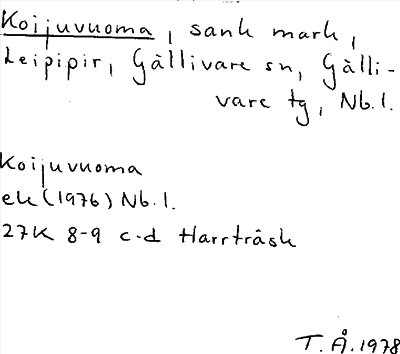 Koijuvuoma, sank mark,
Leipipir, Gällivare sn, Gälli-
vare tg, Nb. l.
Koijuvuoma
ek (1976) Nb. l.
27K 8-9 c-d Harrträsk
T. Å. 1978